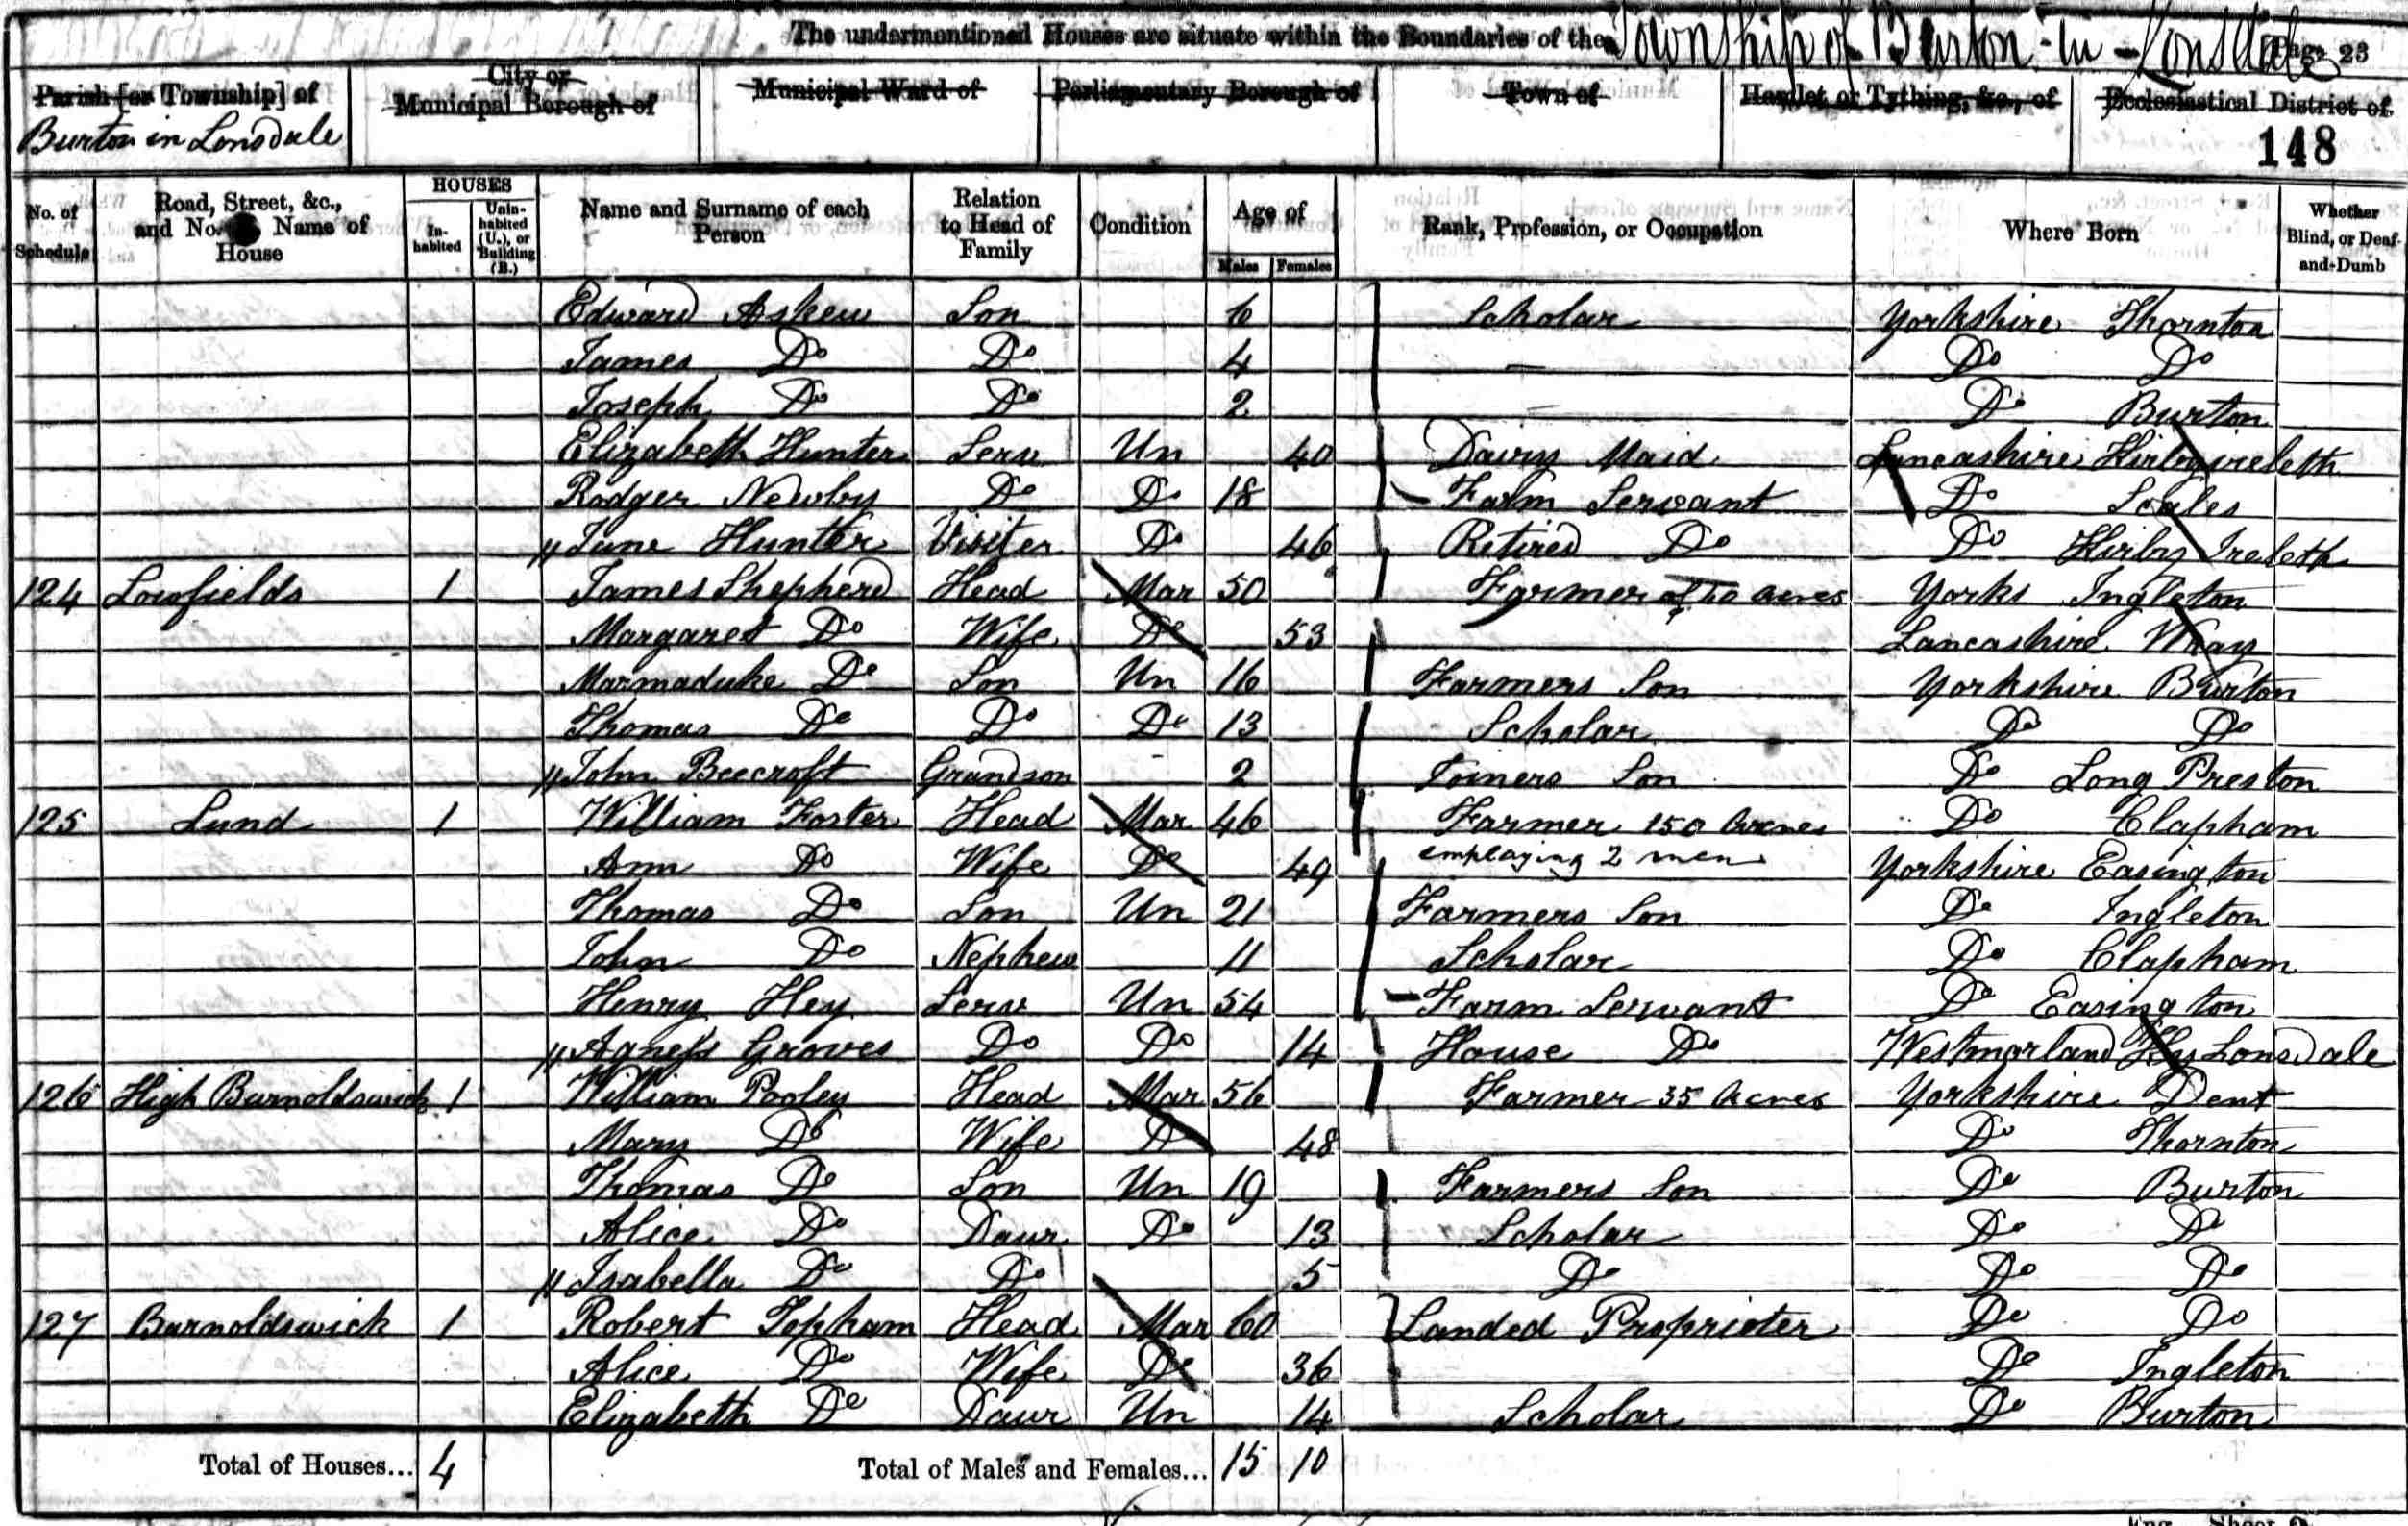 The undermentioned Houses are situate within the Boundaries of the Township of Burton-in-Lonsdale Page 23
Parish [or Township] of
Burton in Lonsdale
City or
Municipal Borough of
Municipal Ward of
Parliamentary Borough of
Town of
Hamlet or Tything, &c., of
Ecclesiastical District of
148
No. of Schedule
Road, Street, &c., and No. Name of House
HOUSES
In-habited
Unin-habited (U.), or Building (B.)
Name and Surname of each Person
Relation to Head of Family
Condition
Age of
Males Females
Rank, Profession, or Occupation
Where Born
Whether Blind, or Deaf-and-Dumb
Edward Askew Son 6 Scholar Yorkshire Thornton
James Do Do 4 — Do Do
Joseph Do Do 2 — Do Burton
Elizabeth Hunter Serv Un 40 Dairy Maid Lancashire Kirby ireleth
Rodger Newby Do Do 18 Farm Servant Do Scales
Jane Hunter Visiter Do 46 Retired Do Do Kirby Ireleth
124 Lowfields 1 James Shepherd Head Mar 50 Farmer of acres Yorks Ingleton
Margaret Do Wife Do 53 Lancashire Wray
Marmaduke Do Son Un 16 Farmers Son Yorkshire Burton
Thomas Do Do Do 13 Scholar Do Do
John Beecroft Grandson - 2 Joiners Son Do Long Preston
125 Lund 1 William Foster Head Mar 46 Farmer 150 Acres Do Clapham
employing 2 men
Ann Do Wife Do 49 Yorkshire Easington
Thomas Do Son Un 21 Farmers Son Do Ingleton
John Do Nephew 11 Scholar Do Clapham
Henry Hey Serv Un 54 Farm Servant Do Easington
Agness Groves Do Do 14 House Do Westmorland Kby Lonsdale
126 High Barnoldswick 1 William Pooley Head Mar 56 Farmer 35 Acres Yorkshire Dent
Mary Do Wife Do 48 Do Thornton
Thomas Do Son Un 19 Farmers Son Do Burton
Alice Do Daur Do 13 Scholar Do Do
Isabella Do Do 5 Do Do Do
127 Barnoldswick 1 Robert Topham Head Mar 60 Landed Proprieter Do Do
Alice Do Wife Do 36 Do Ingleton
Elizabeth Do Daur Un 14 Scholar Do Burton
Total of Houses... 4 Total of Males and Females... 15 10